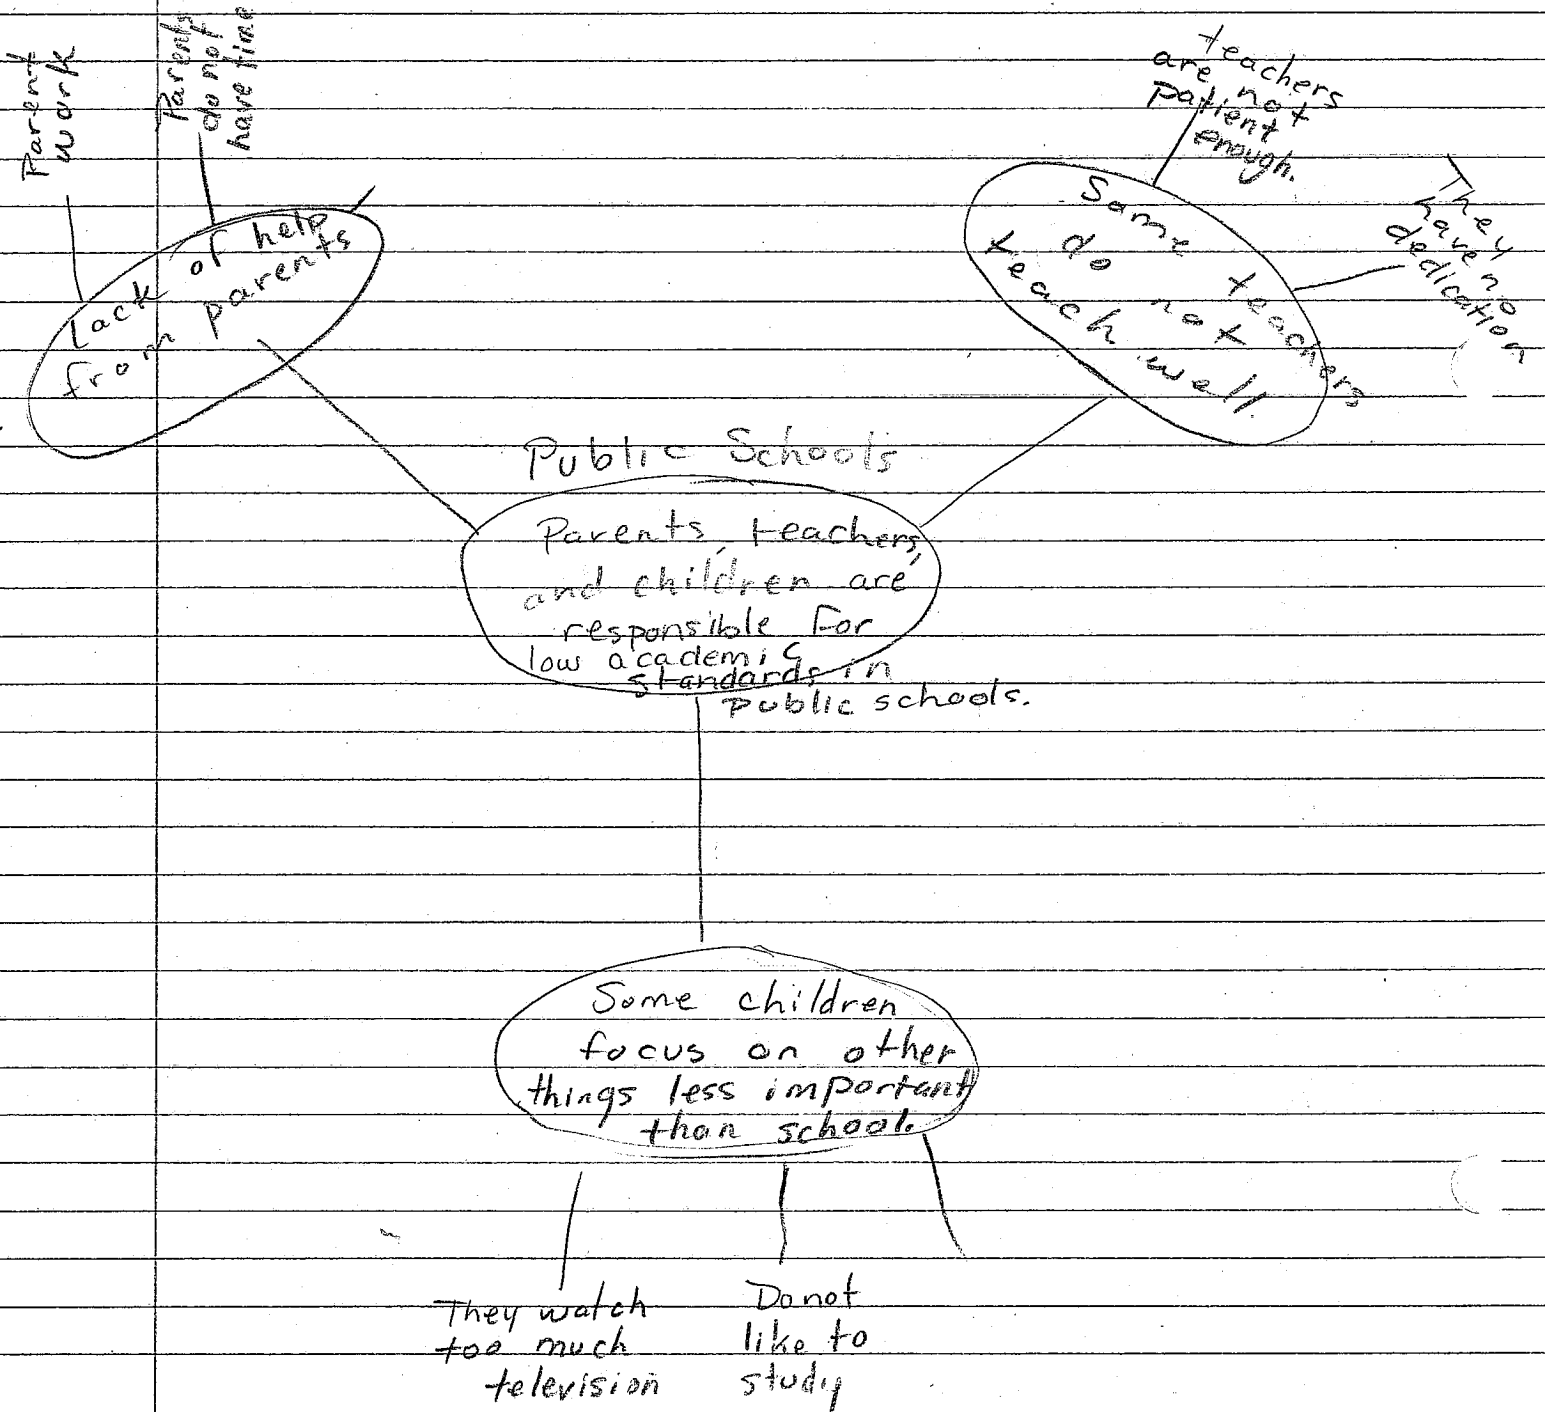 Parent
work
Parents
do not
have time
Lack of help
from parents
teachers
are not
patient
enough.
Some teachers
do not
teach well.
They
have no
dedication
Public Schools
Parents, teachers,
and children are
responsible for
low academic
standards in
public schools.
Some children
focus on other
things less important
than school.
They watch
too much
television
Do not
like to
study